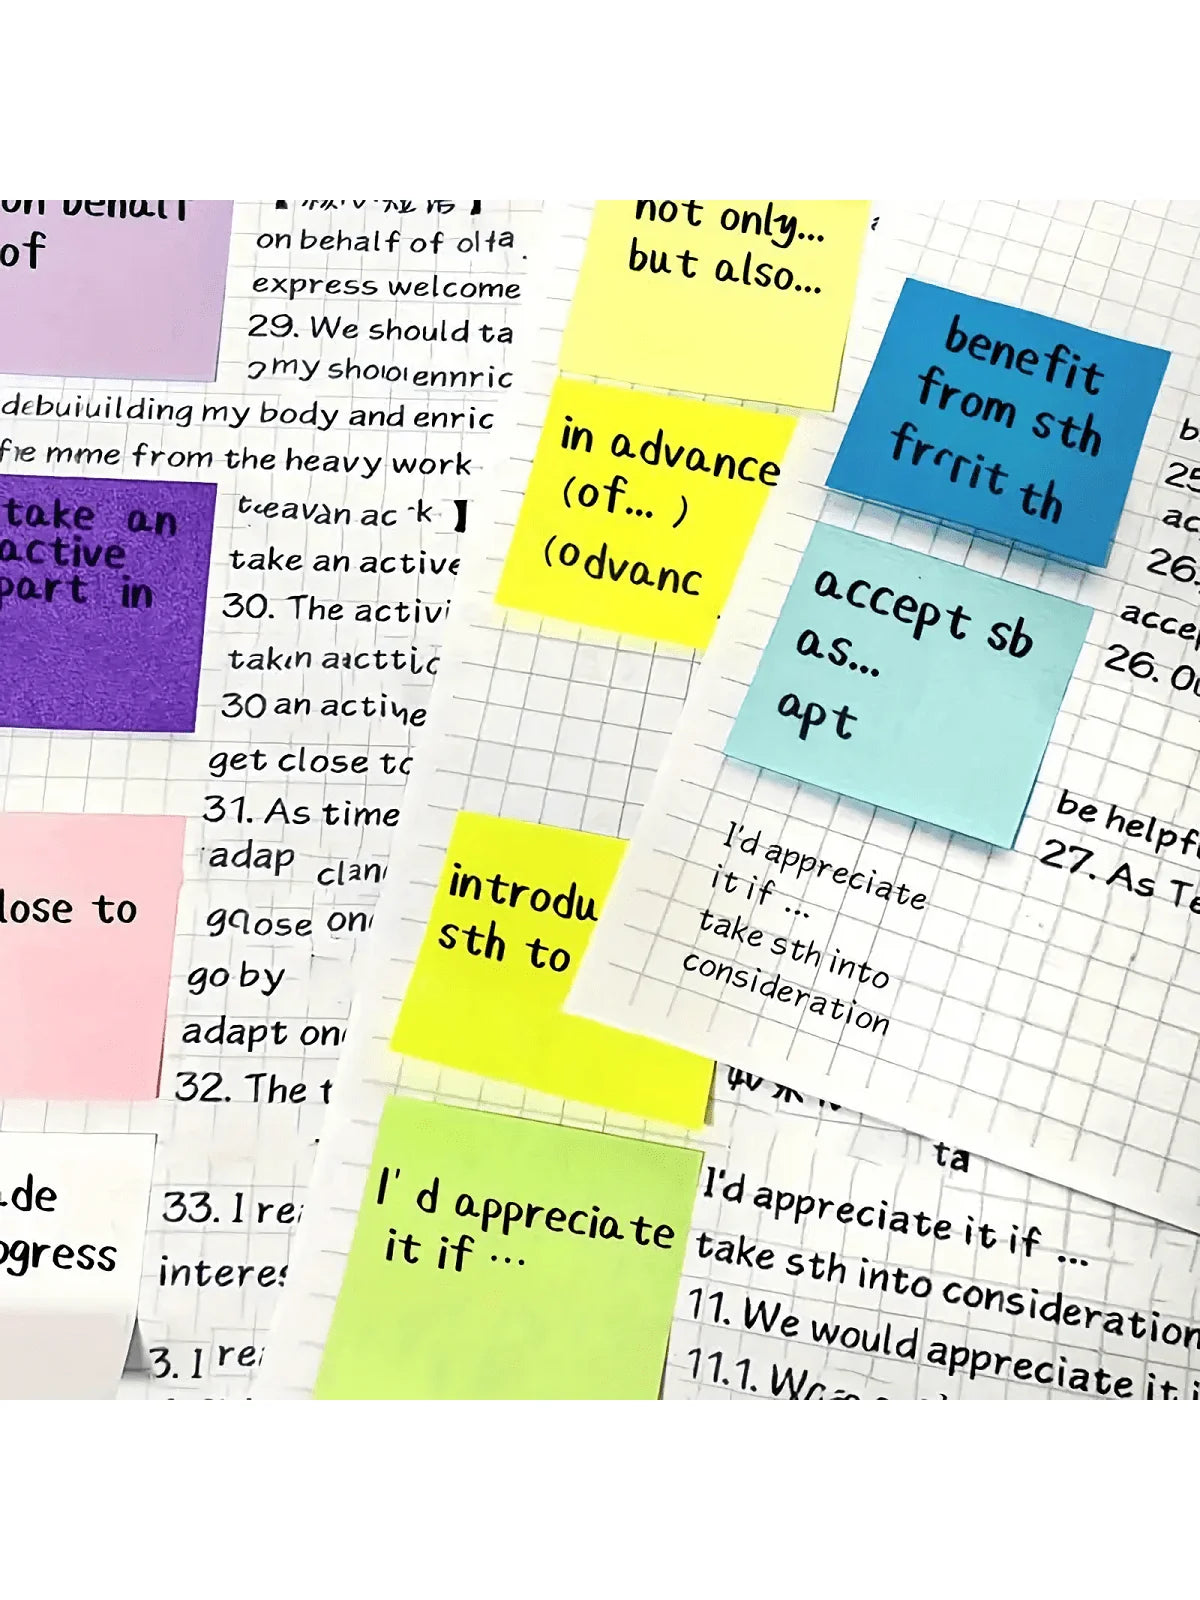 of
on behalf of
express welcome
29. We should ta
my body and enric
from the heavy work
take an
active
part in
take an active
30. The activi
30 an active
get close to
31. As time
adap
close to
go by
adapt on
32. The t
de
ogress
33. I re
interes
3. I re
not only...
but also...
in advance
(of... )
(odvanc
introdu
sth to
I'd appreciate
it if ...
benefit
from sth
th
accept sb
as...
apt
25
ac
26.
accep
26. O
be helpf
27. As Te
I'd appreciate
it if ...
take sth into
consideration
ta
I'd appreciate it if ...
take sth into consideration
11. We would appreciate it i
11.1.